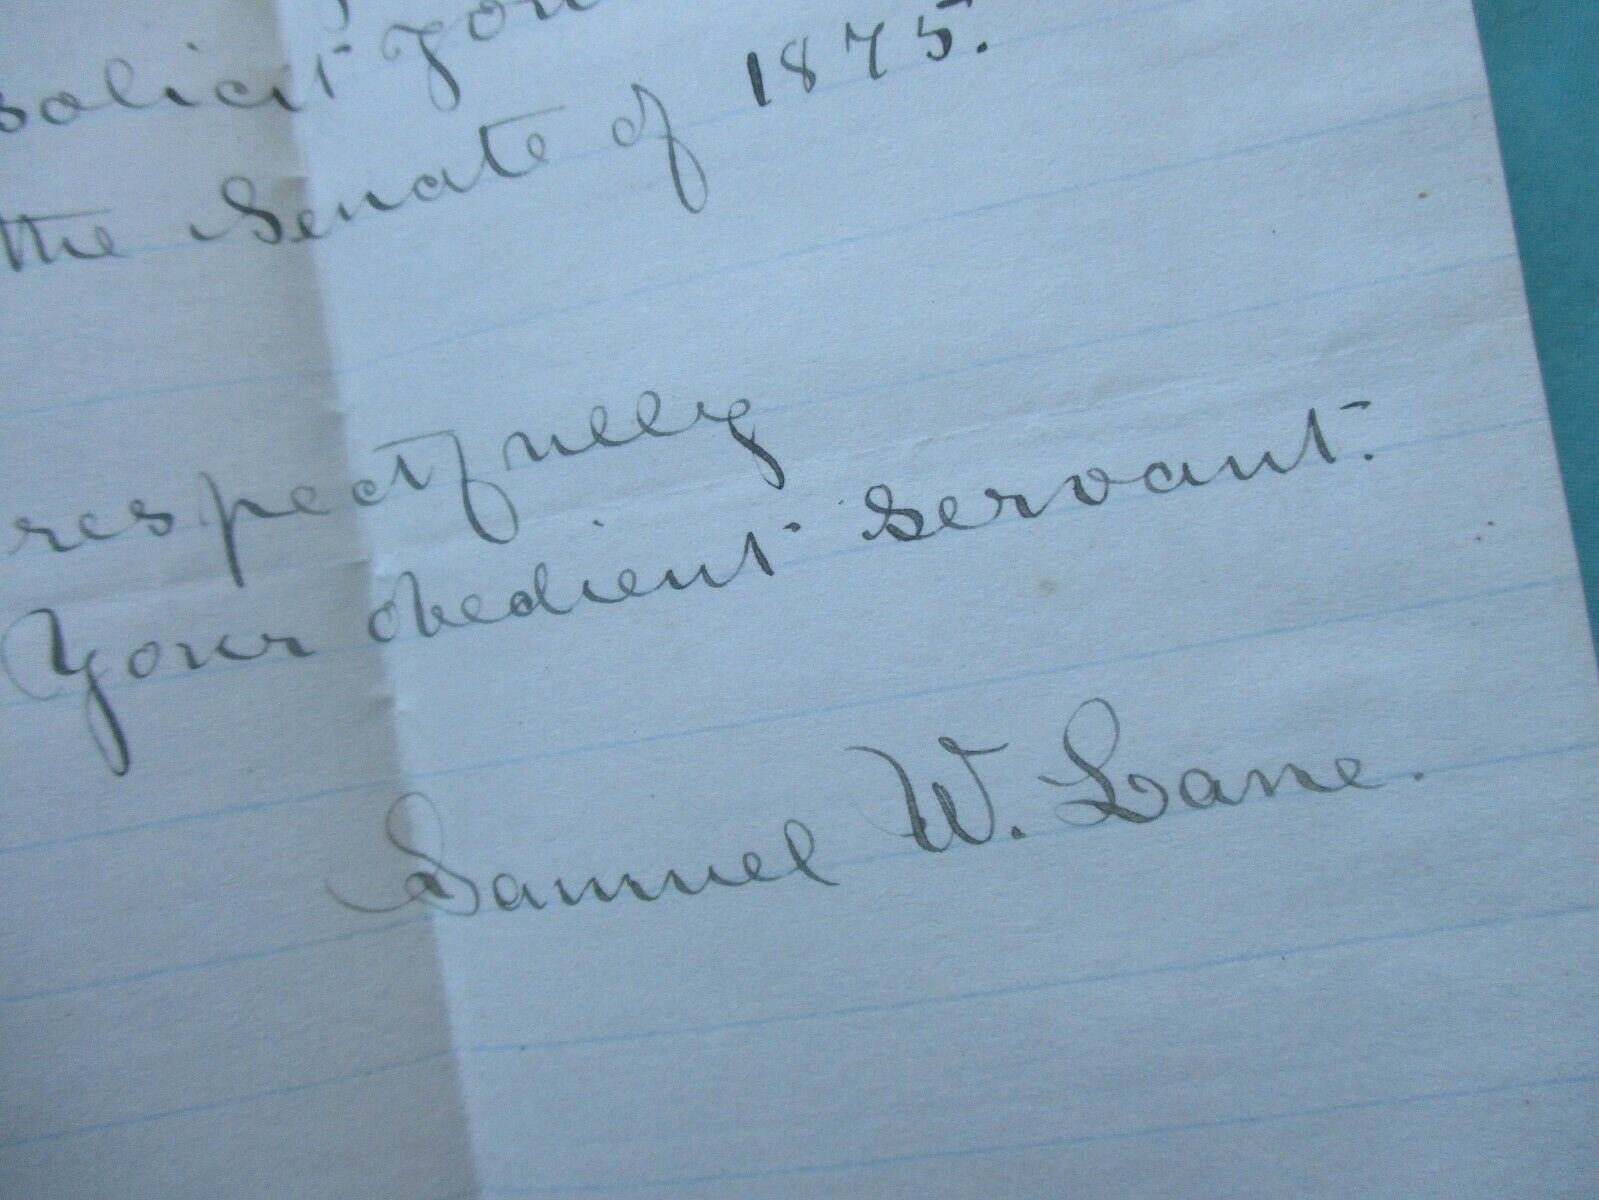 solicit you
the Senate of 1875.
respectfully
Your obedient servant.
Samuel W. Lane.